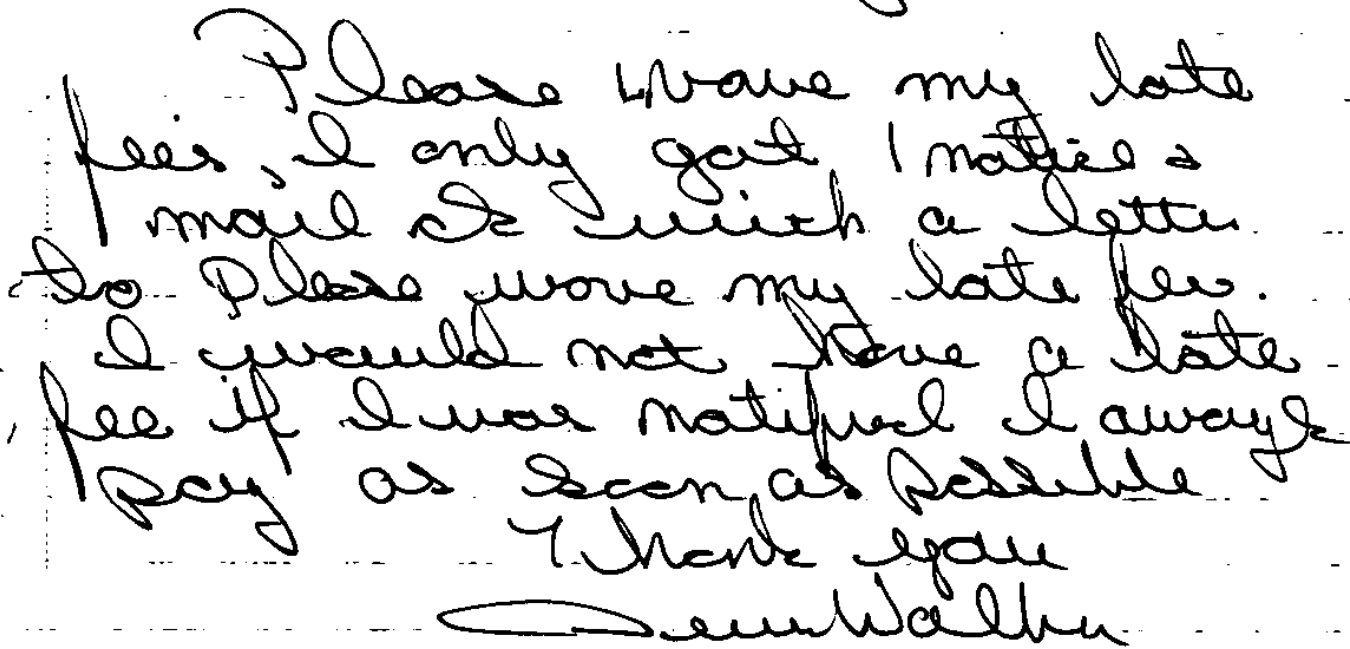 Please wave my late
fees, I only got 1 notice &
mail it with a letter
to Please wove my late fee.
I would not have a late
fee if I was notified I aways
pay as soon as possible
Thank you